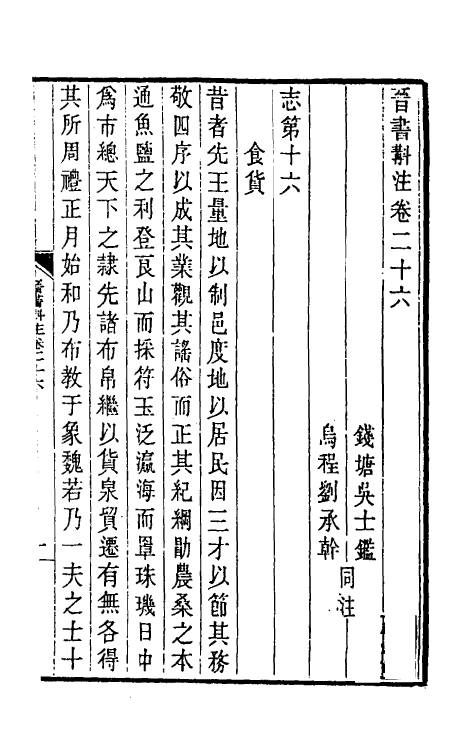 晉書斠注卷二十六
錢塘吳士鑑
烏程劉承幹
同注
志第十六
食貨
昔者先王量地以制邑度地以居民因三才以節其務
敬四序以成其業觀其謠俗而正其紀綱勖農桑之本
通魚鹽之利登良山而採符玉泛瀛海而罩珠璣日中
爲市總天下之隸先諸布帛繼以貨泉貿遷有無各得
其所周禮正月始和乃布教于象魏若乃一夫之士十
晉書斠注卷二十六
一